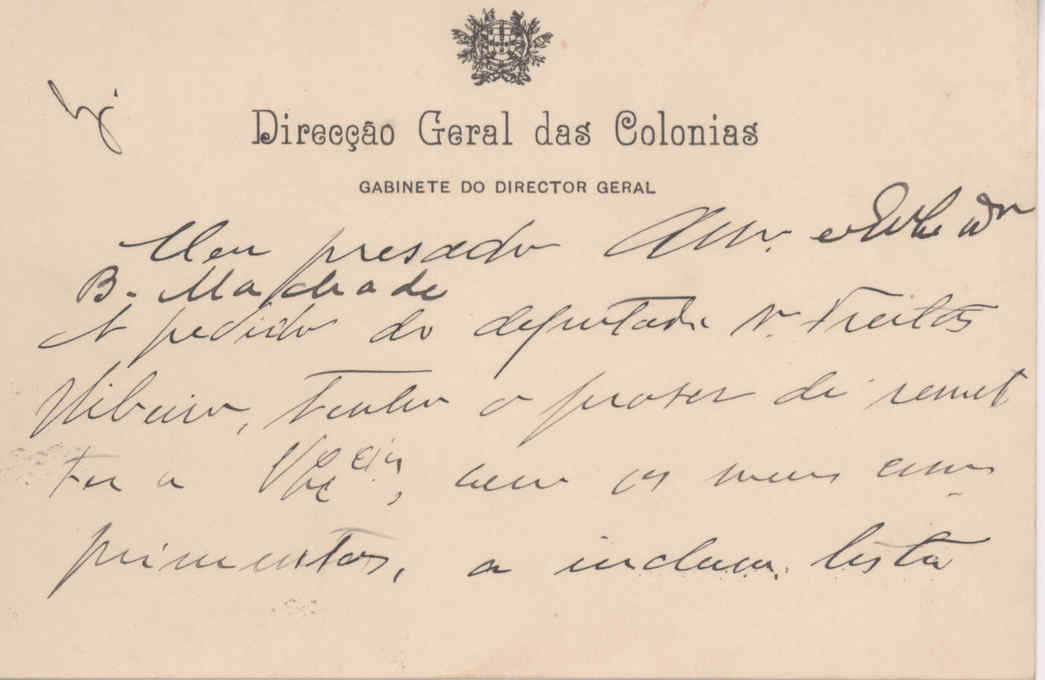 Direcção Geral das Colonias
GABINETE DO DIRECTOR GERAL
Meu presado Am.
B. Machado
A pedido do deputado Sr. Freitas
Ribeiro, tenho o praser de remet
ter a V. Excia, com os meus cum
primentos, a inclusa lista